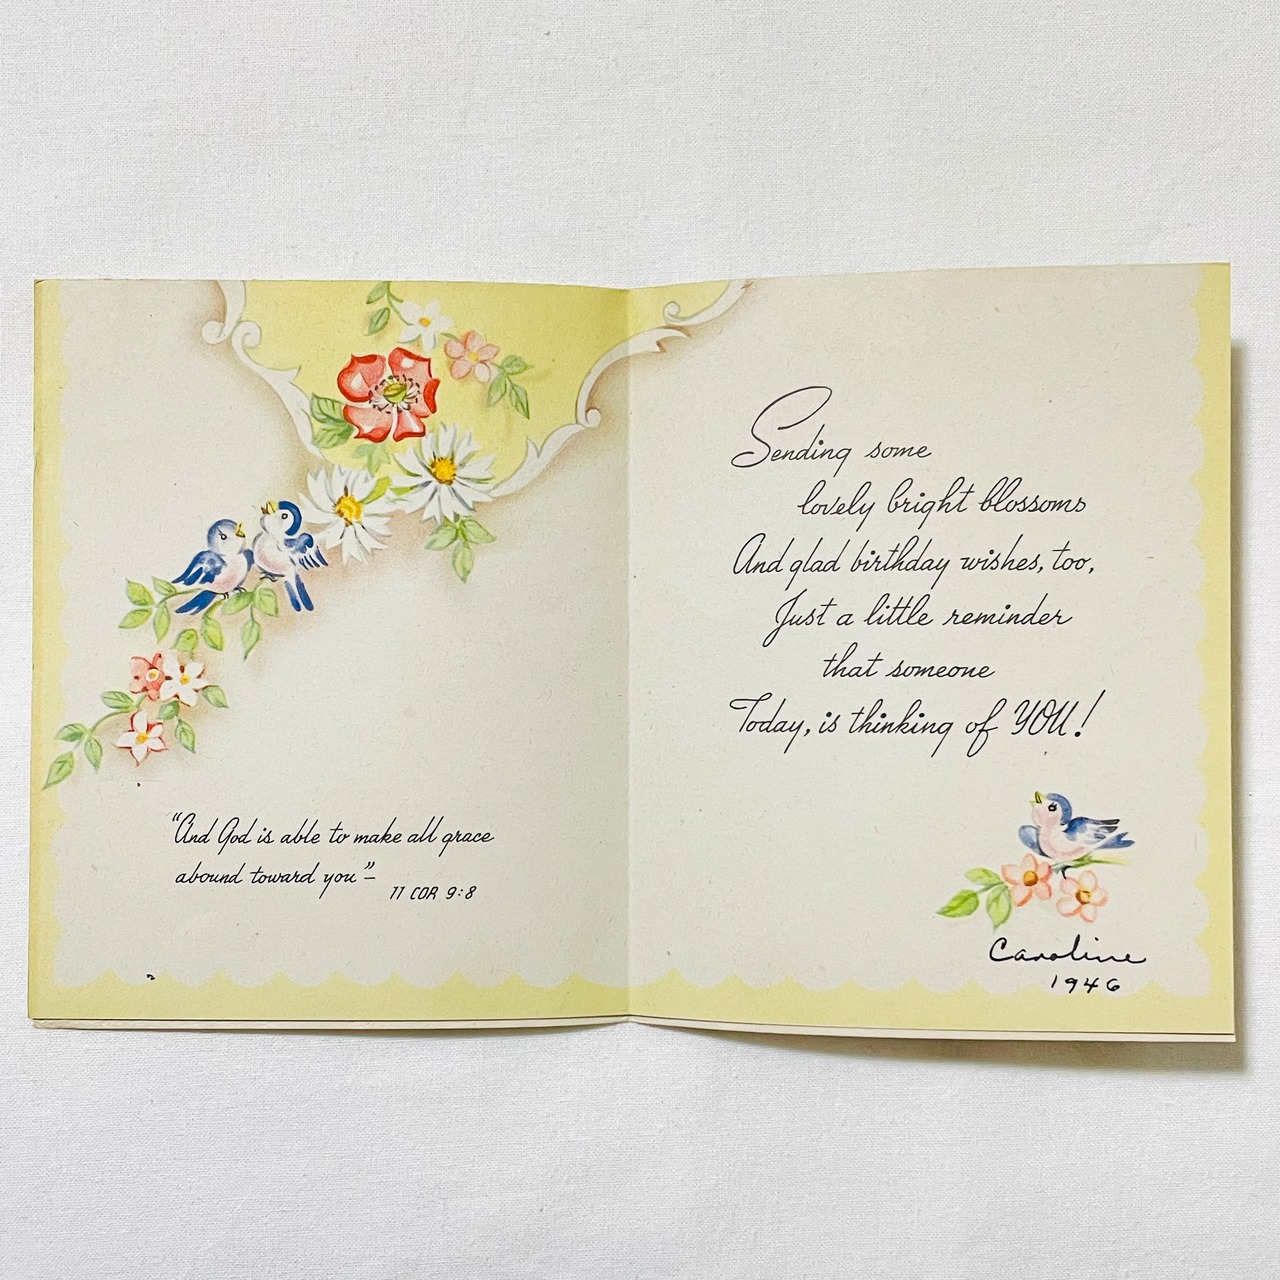 "And God is able to make all grace
abound toward you"—
II COR 9:8
Sending some
lovely bright blossoms
And glad birthday wishes, too,
Just a little reminder
that someone
Today, is thinking of YOU!
Caroline
1946